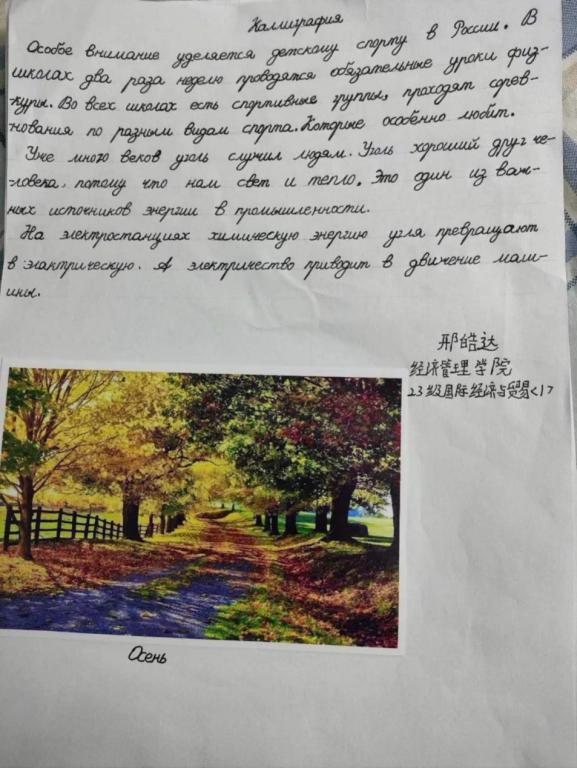 Каллиграфия
Особое внимание уделяется детскому спорту в России. В
школах два раза неделю проводятся обязательные уроки физ-
куры. Во всех школах есть спортивные группы, проходят сорев-
нования по разным видам спорта. Которые особенно любит.
Уже много веков уголь служил людям. Уголь хороший друг че-
ловека, потому что нам свет и тепло. Это один из важ-
ных источников энергии в промышленности.
На электростанциях химическую энергию угля превращают
в элактрическую. А электричество приводит в движение маш-
ины.
邢皓达
经济管理学院
23级国际经济与贸易<1>
Осень